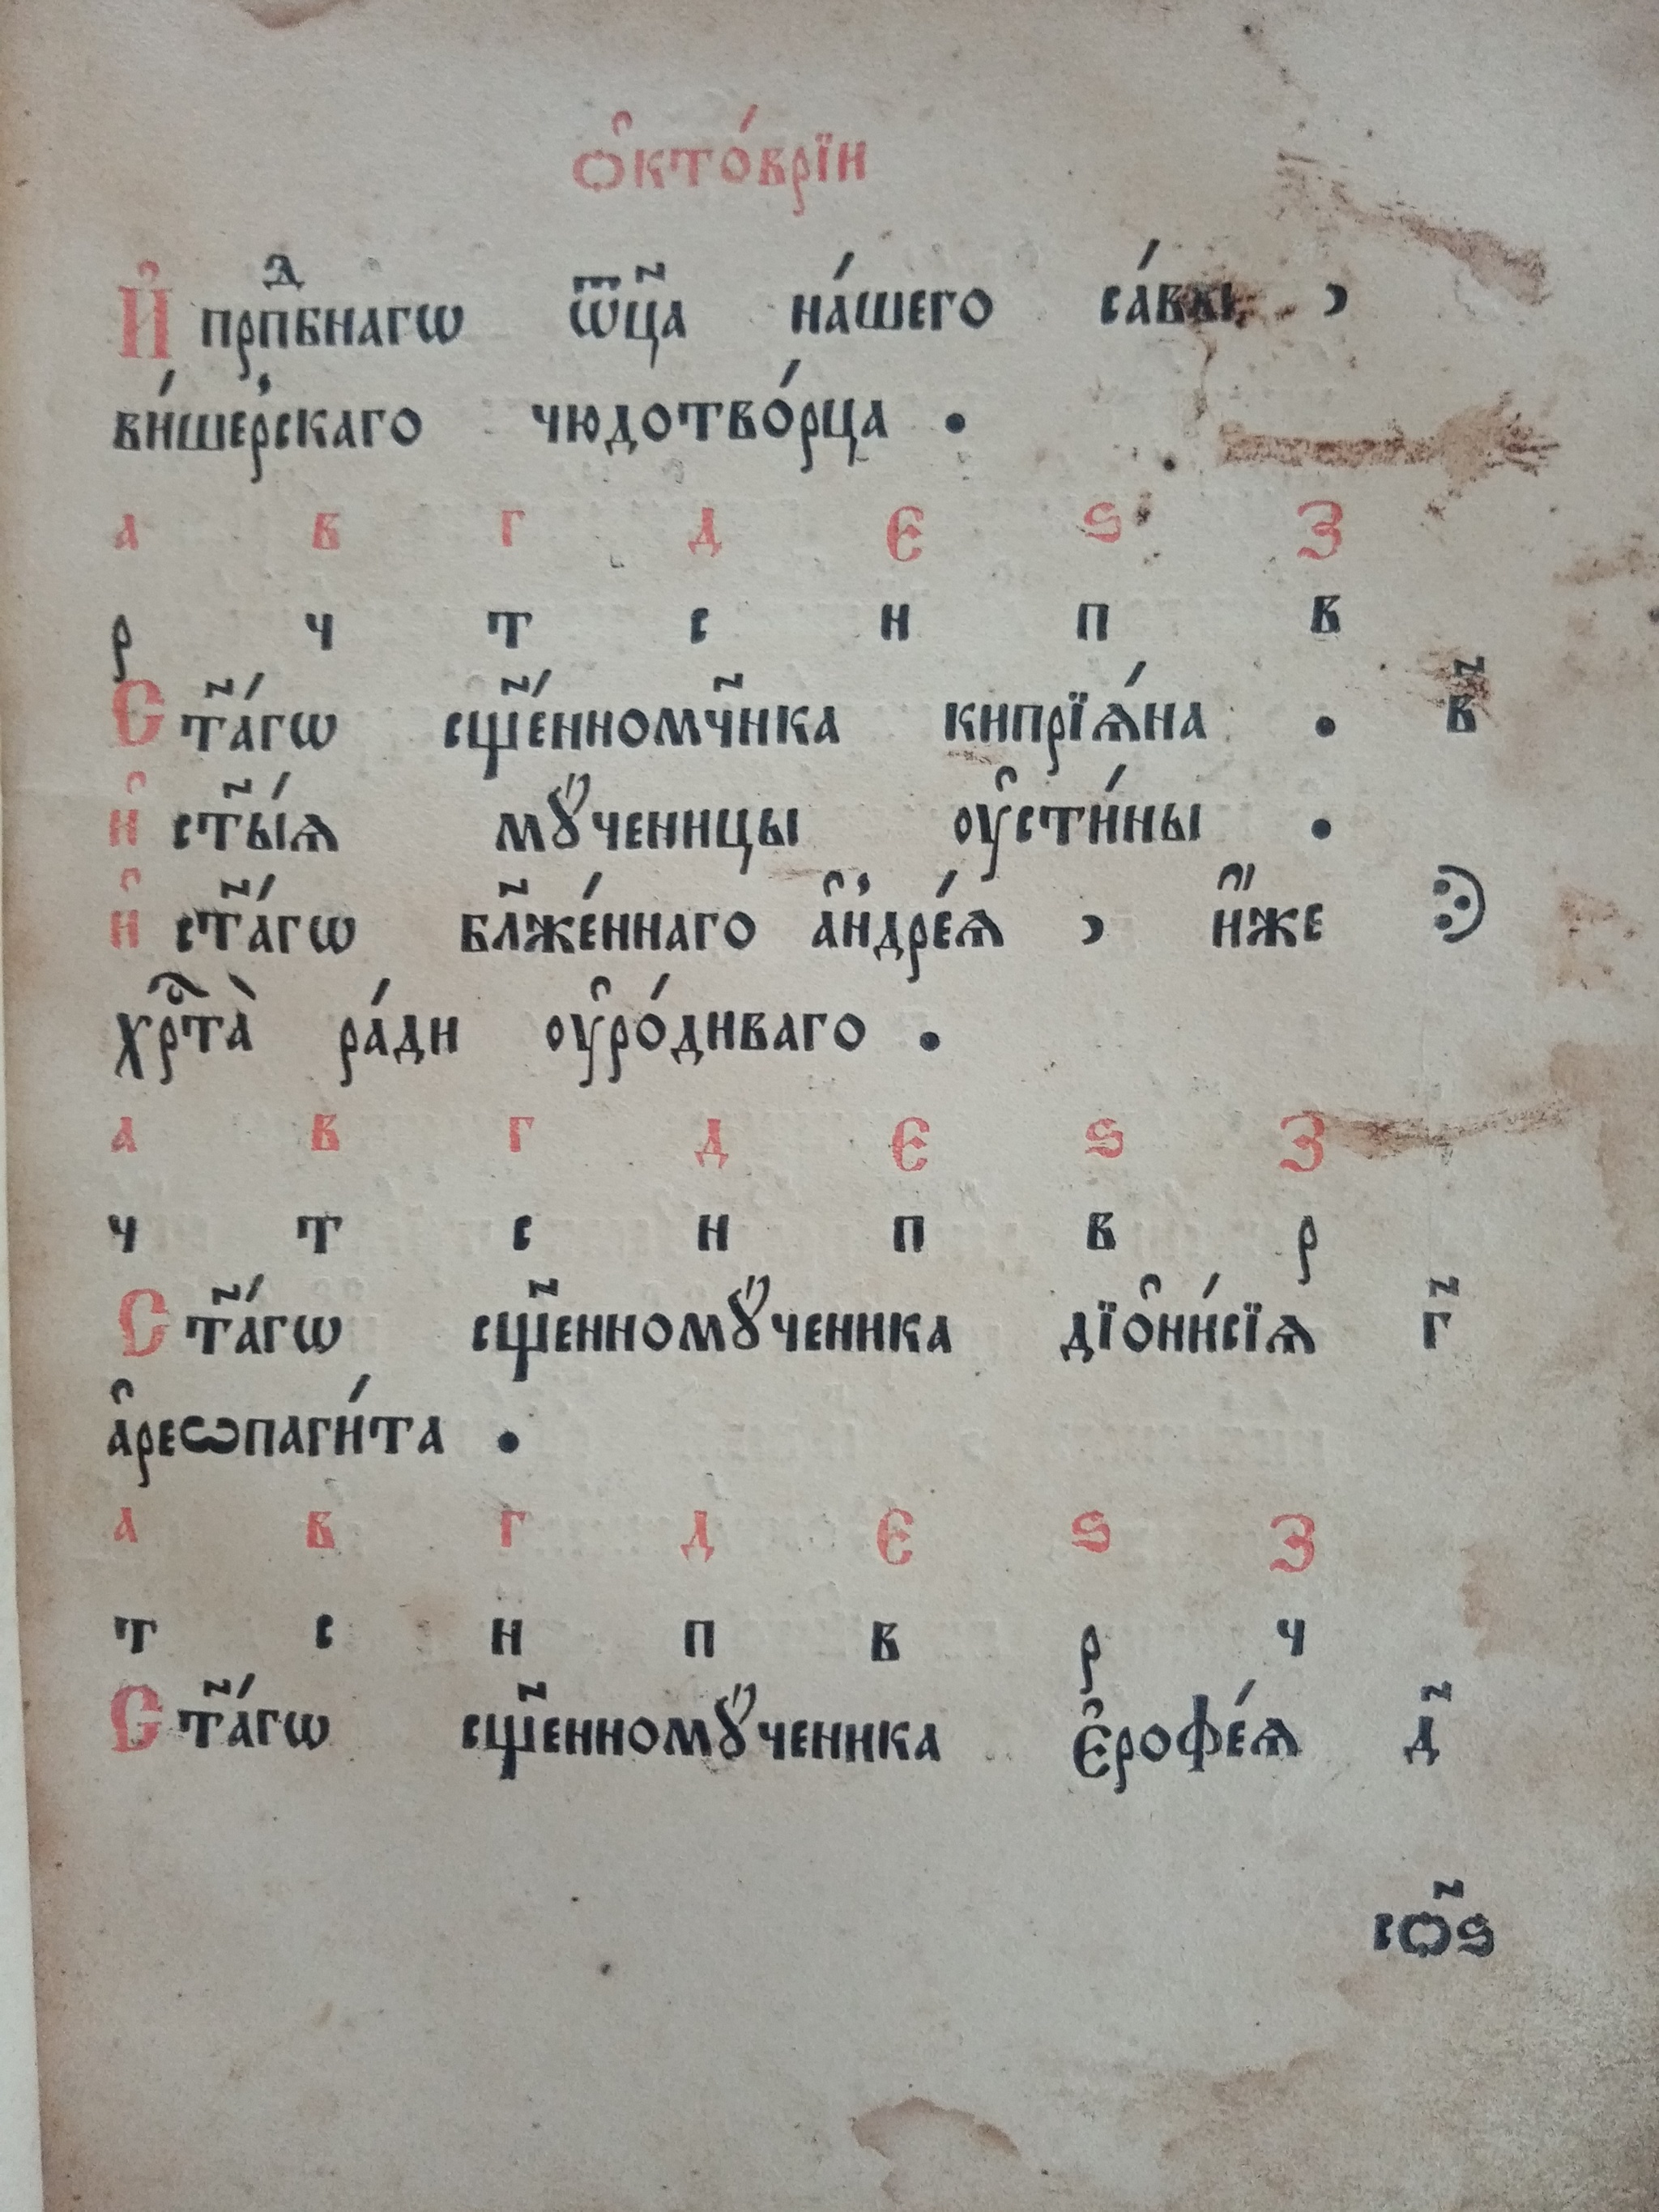 ѻ҆кто́врїи
И҆ прпⷣбнагѡ ѿц҃а на́шего са́ввы ,
ви́шерскаго чюдотво́рца .
а в г д є ѕ з
р ч т с н п в
Ст҃а́гѡ сщ҃е́нномч҃нка кипрїѧ́на . в҃
и҆ ст҃ы́ѧ мꙋ́ченицы оу҆сти́ны .
и҆ ст҃а́гѡ бл҃же́ннаго а҆ндре́ѧ , и҆́же
хрⷭ҇та̀ ра́ди оу҆ро́диваго .
а в г д є ѕ з
ч т с н п в р
Ст҃а́гѡ сщ҃енномꙋ́ченика дїѻ҆ни́сїѧ г҃
а҆реѡпаги́та .
а в г д є ѕ з
т с н п в р ч
Ст҃а́гѡ сщ҃енномꙋ́ченика є҆рофе́ѧ д҃
сѻ҃ѕ